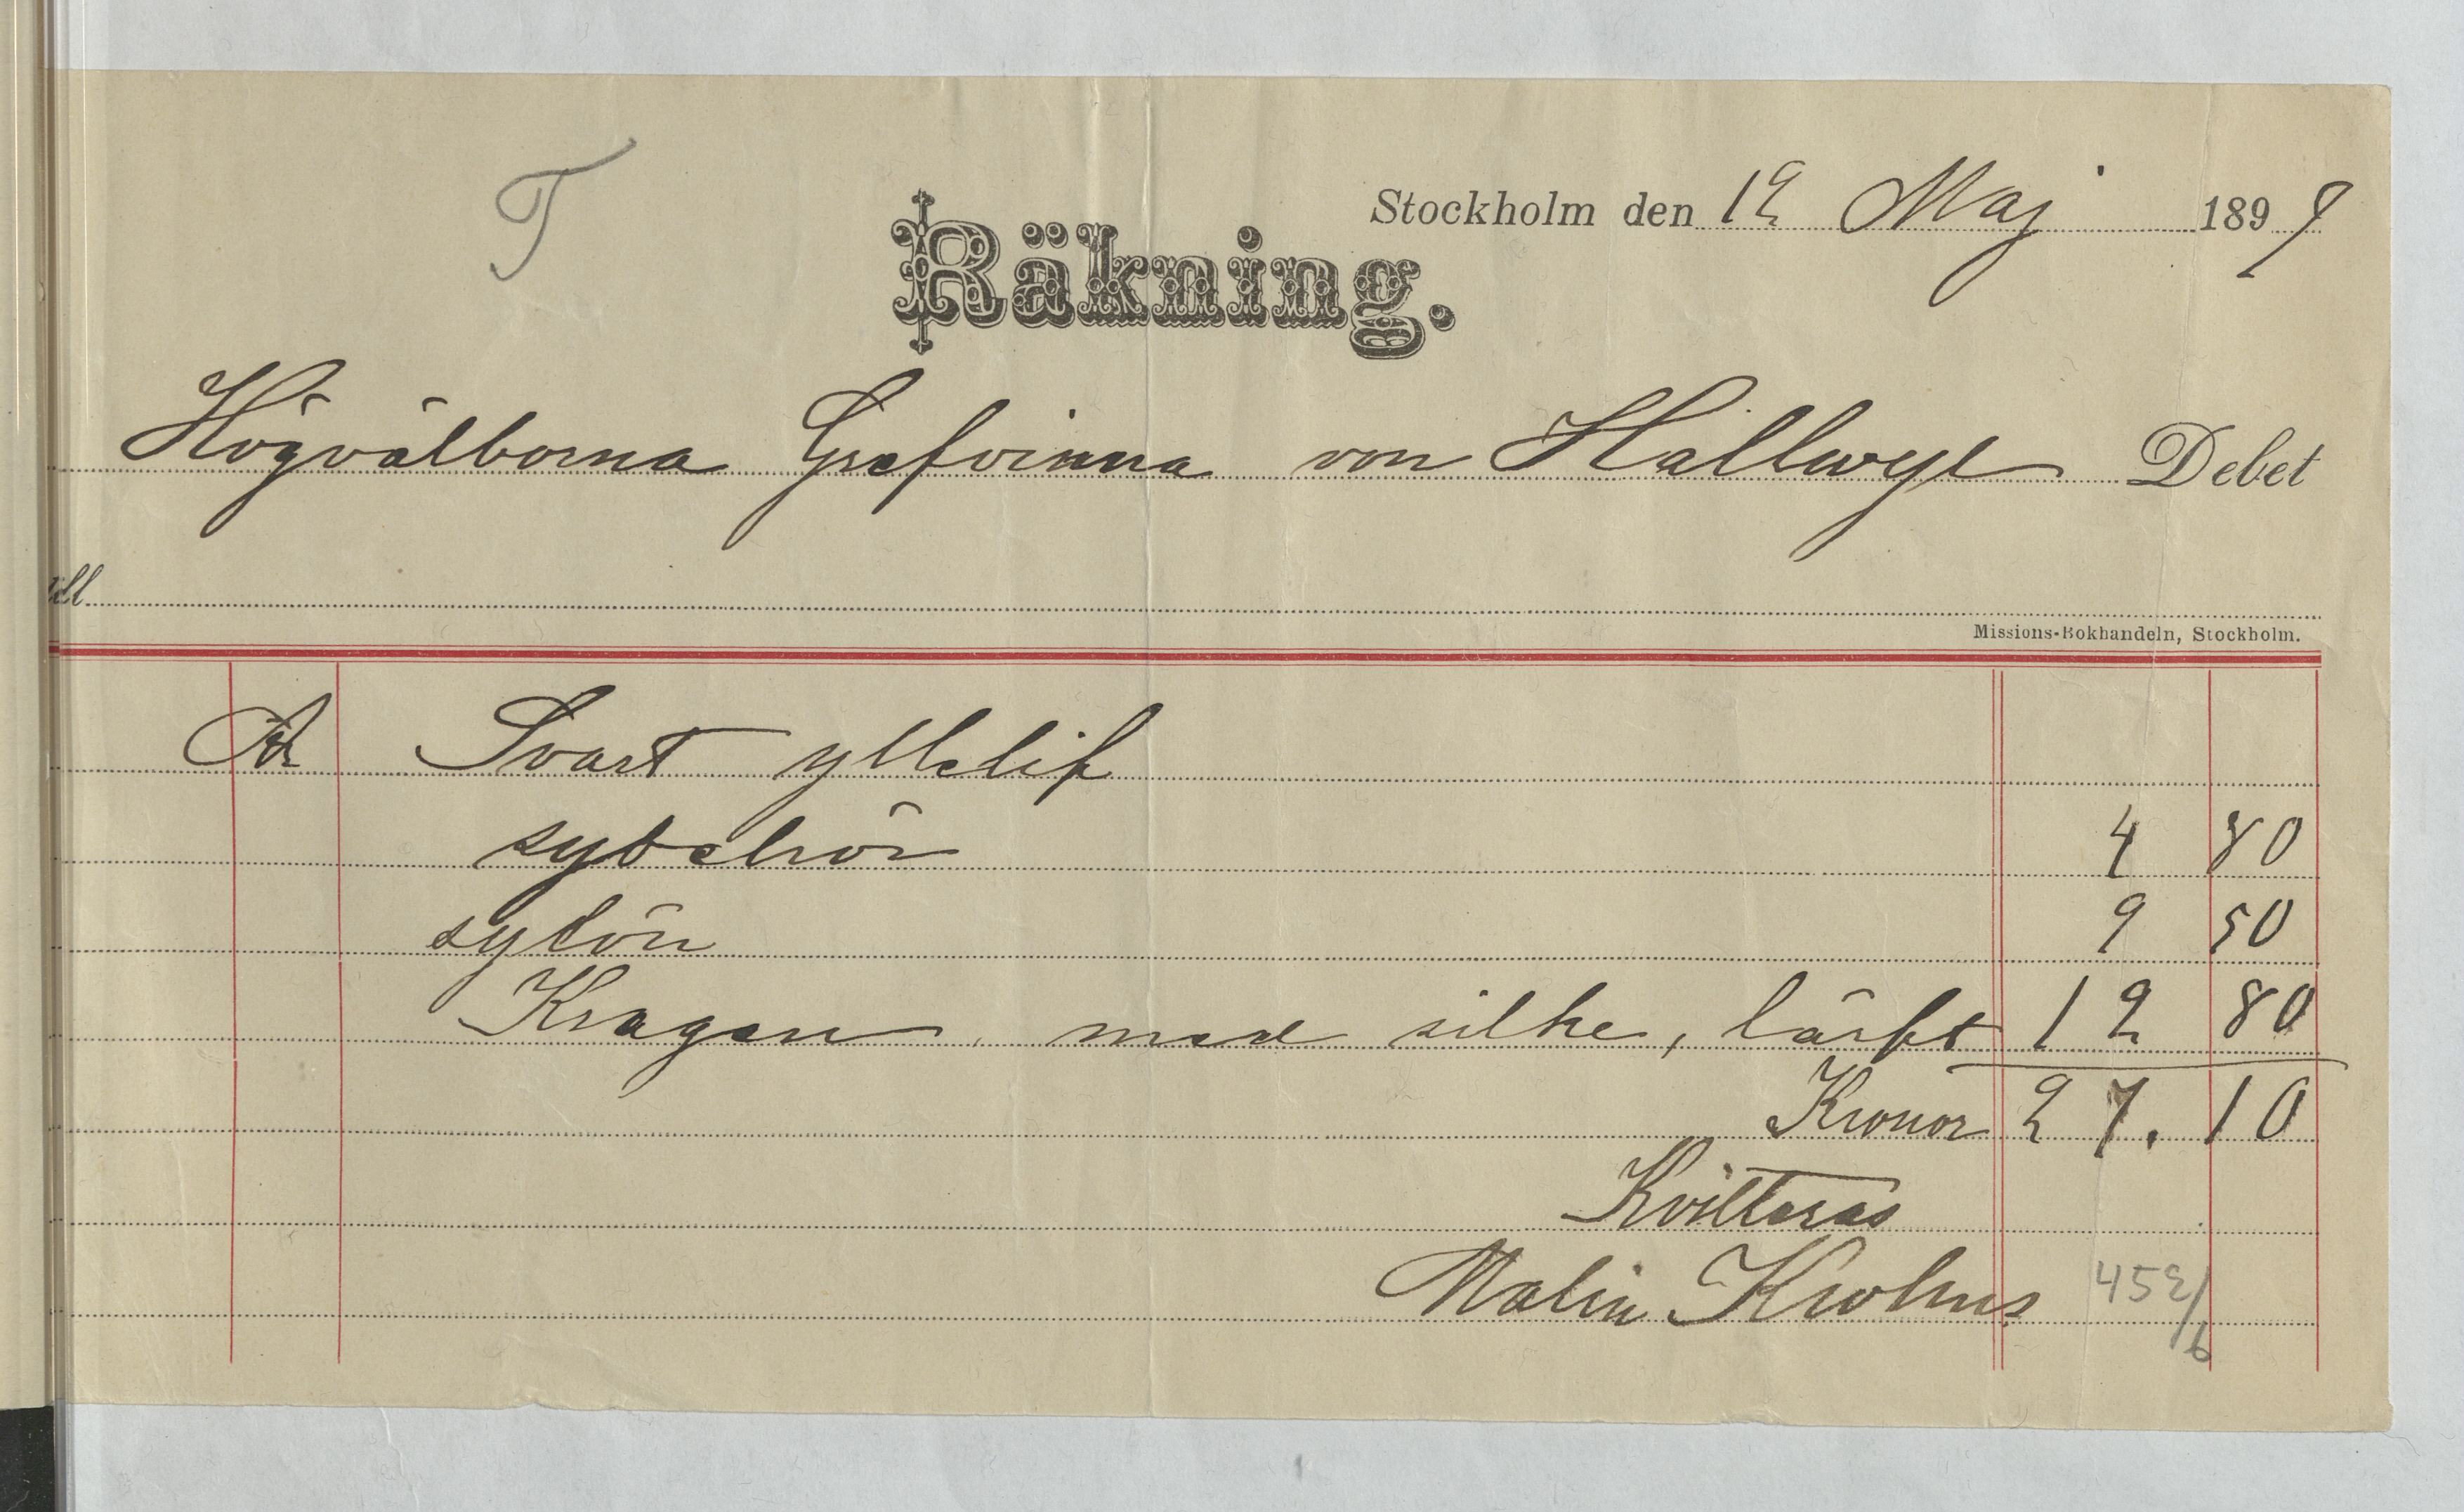 T
Stockholm den 12 Maj 1899
Räkning.
Högvälborna Grefvinna von Hallwyl Debet
till
Missions-Bokhandeln, Stockholm.
Svart ylleklif
sybehör 4 80
sylön 9 50
Kragen med silke, lärft 12 80
Kronor 27. 10
Kvitteras
Malin Krohns
452/6